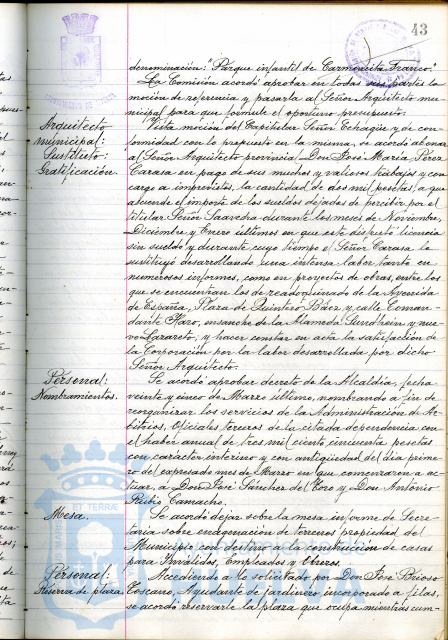 43
denominación: "Parque infantil de Carmencita Franco."
La Comisión acordó aprobar en todas sus partes la
moción de referencia y pasarla al Señor Arquitecto mu-
nicipal para que formule el oportuno presupuesto.
Arquitecto
municipal:
Sustituto:
Gratificación.
Vista moción del Capitular Señor Echagüe y de con-
formidad con lo propuesto en la misma, se acordó abonar
al Señor Arquitecto provincial Don José María Pérez
Carasa en pago de sus muchos y valiosos trabajos y con
cargo a imprevistos, la cantidad de dos mil pesetas, a que
asciende el importe de los sueldos dejados de percibir por el
titular Señor Saavedra durante los meses de Noviembre,
Diciembre y Enero últimos en que este disfrutó licencia
sin sueldo y durante cuyo tiempo el Señor Carasa le
sustituyó desarrollando una intensa labor tanto en
numerosos informes, como en proyectos de obras, entre los
que se encuentran los de readoquinado de la Avenida
de España, Plaza de Quintero Báez y calle Coman-
dante Haro, ensanche de la Alameda Sundheim y nue-
vo Lazareto, y hacer constar en acta la satisfacción de
la Corporación por la labor desarrollada por dicho
Señor Arquitecto.
Personal:
Nombramientos.
Se acordó aprobar decreto de la Alcaldía, fecha
veinte y cinco de Marzo último, nombrando a fin de
reorganizar los servicios de la Administración de Ar-
bitrios, Oficiales terceros de la citada dependencia con
el haber anual de tres mil ciento cincuenta pesetas
con carácter interino y con antigüedad del día prime-
ro del expresado mes de Marzo en que comenzaron a ac-
tuar, a Don José Sánchez del Toro y Don Antonio
Rubio Camacho.
Mesa.
Se acordó dejar sobre la mesa informe de Secre-
taría sobre enagenación de terrenos propiedad del
Municipio con destino a la construcción de casas
para Inválidos, Empleados y Obreros.
Personal:
Reserva de plaza.
Accediendo a lo solicitado por Don José Barroso
Toscano, Ayudante de jardinero incorporado a filas,
se acordó reservarle la plaza que ocupa mientras cum-